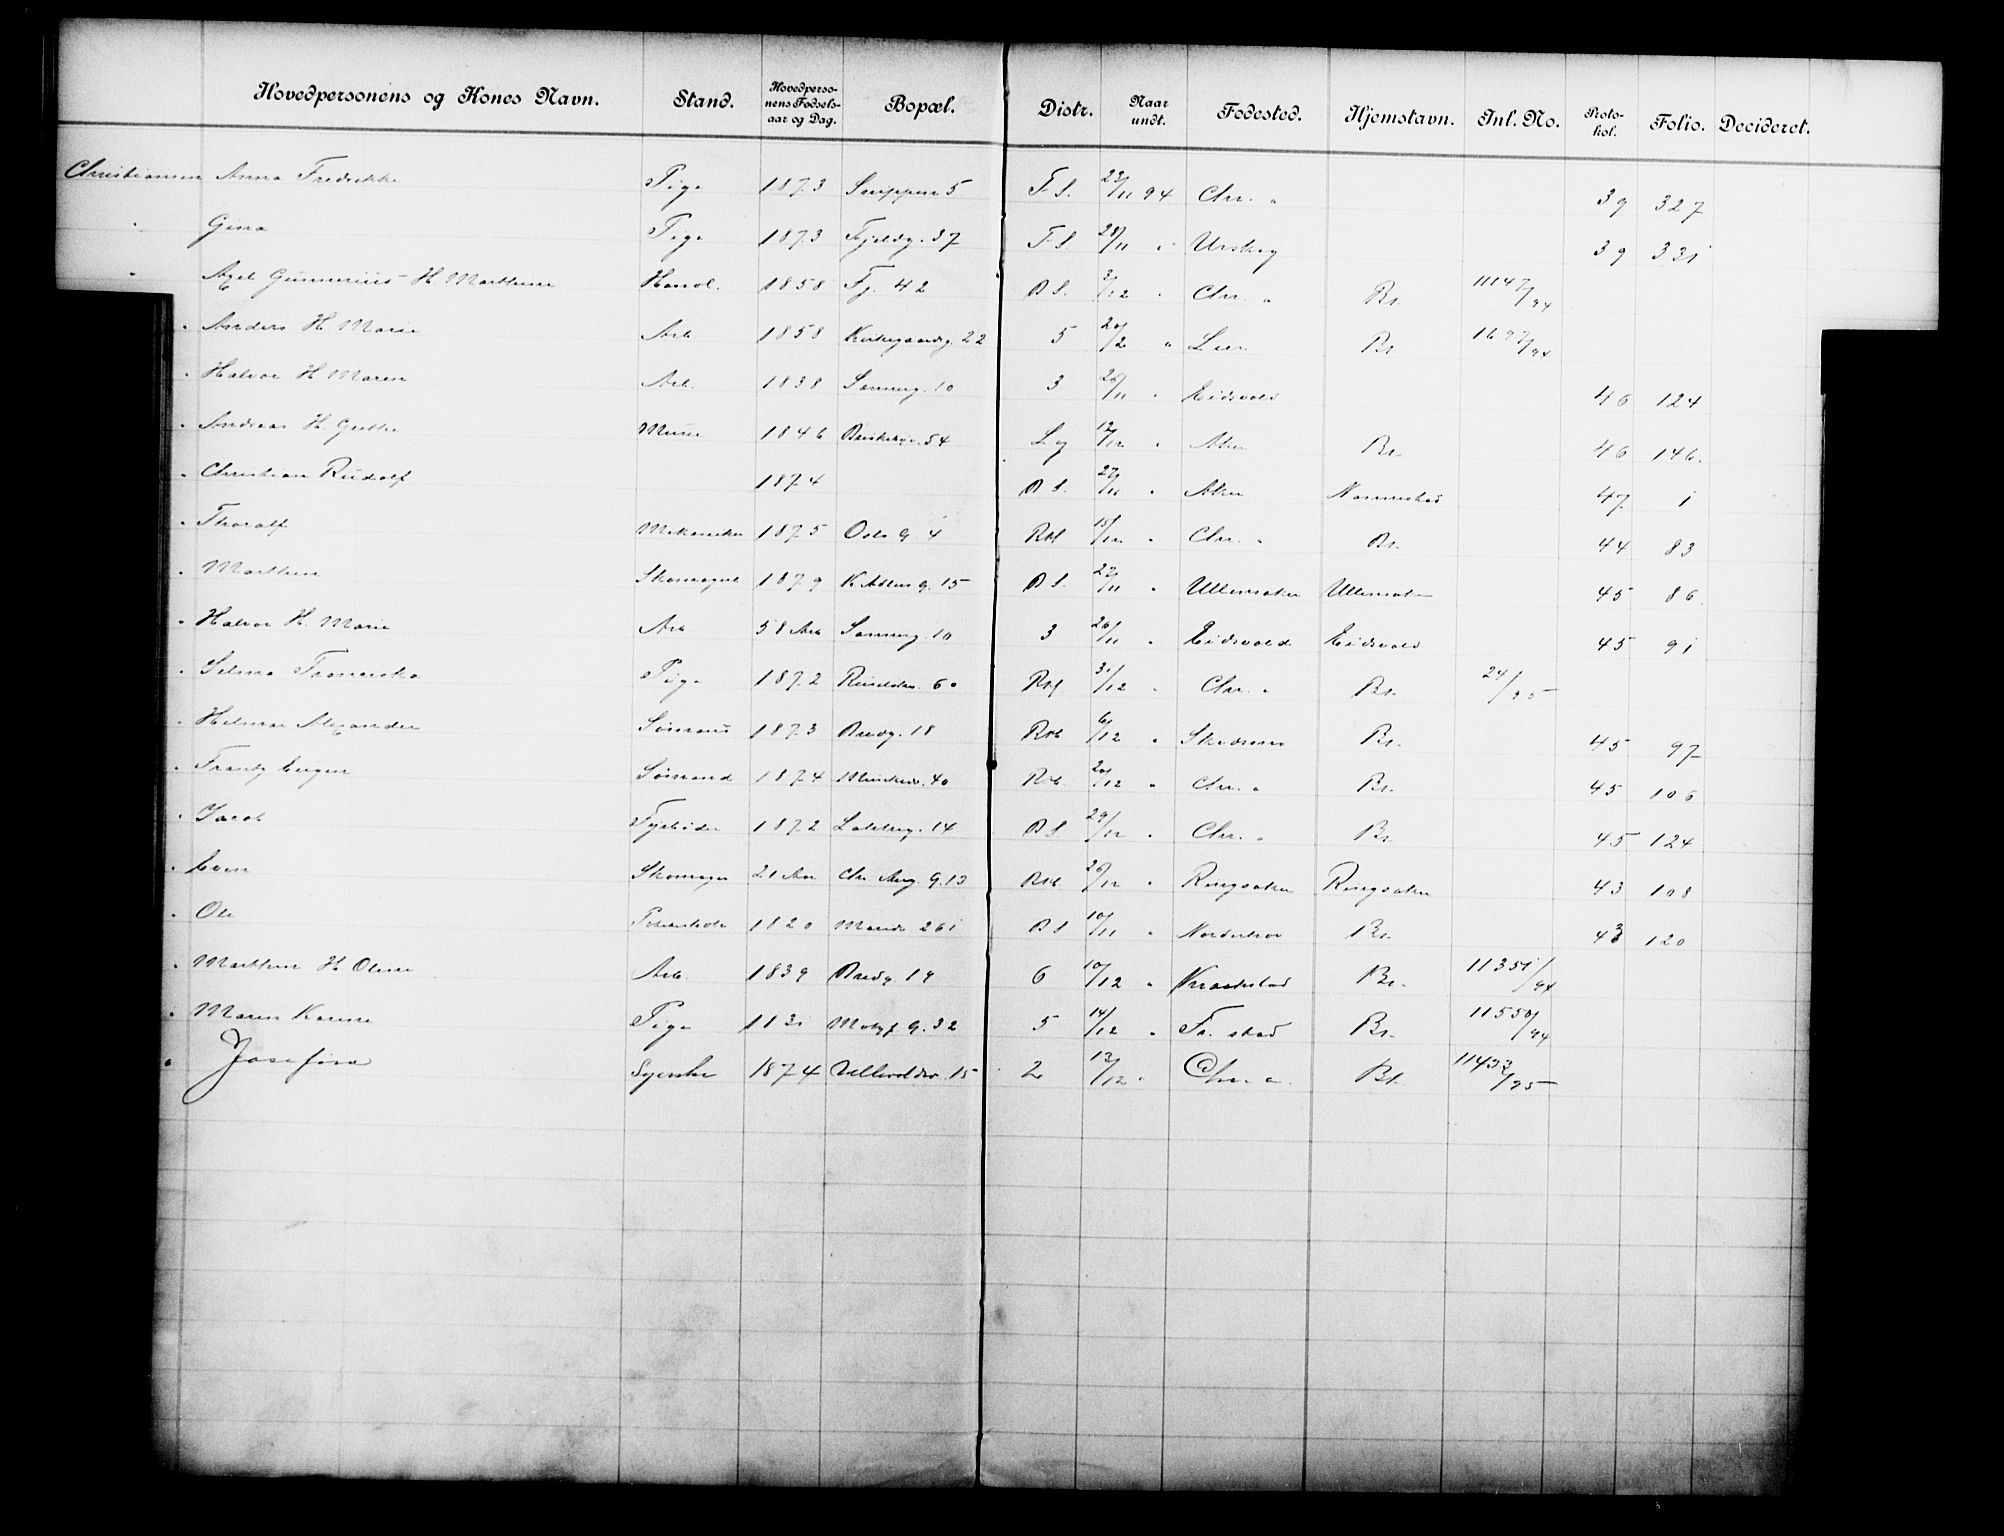 Hovedpersonens og Kones Navn. Stand. Hovedperso-nens Fødsels-aar og Dag. Bopæl. Distr. Naar undt. Fødested. Hjemstavn. Inl. No. Proto-kol. Folio. Decideret.
Christiansen Anna Fredrikke Pige 1873 Snippen 5 F S. 23/11 94 Chr. a 39 327
" Gina Pige 1873 Fjeldg. 37 F S. 28/11 " Urskog 39 331
" Axel Gunnerius H. Marthine Handl. 1858 Fj. 42 B S. 3/12 " Chr. a Br. 11147/94
" Anders H. Marie Arb 1858 Kirkegaardg. 22 5 20/2 " Lier Br. 1697/94
" Halvor H Maren Arb. 1838 3 26/11 " Eidsvold 46 124
" Andreas H. Murer 1846 54 12/12 " Aker Br. 46 146.
" Christian Rudolf 1874 B S. 27/11 " Aker 47 1
" Thoralf Mekaniker 1875 Oslo g. 4 15/12 " Chr. a Br. 44 83
" Marthin Skomager 1879 15 B S. 27/11 " Ullensaker Ullensaker 45 86.
" Halvor H. Marie Arb 58 Aar 10 3 26/11 " Eidsvold Eidsvold 45 91
" Selma Franciska Pige 1872 60 31/12 " Chr. a Br. 24/95
" Hilmar Alexander Sømand 1873 Bredg. 18 6/12 " Skedsmo Br. 45 97
" Frantz Eugen Sømand 1874 40 20/12 " Chr. a Br. 45 106
" Jacob Fyrbøder 1872 14 B S 29/12 " Chr. a Br. 45 124
" Even Skomager 21 Aar Chr. Aug. g. 13 26/12 " Ringsaker Ringsaker 43 108
" Ole 1820 261 B S 10/11 " Norderhov Br. 43 120
" Marthin H Oline Arb. 1839 Bredg. 19 6 10/12 " Kraakstad Br. 11351/94
" Maren Karine Pige 32 5 14/12 " Fr. stad Br. 11550/94
" Josefine Syerske 1874 15 2 13/12 " Chr. a. Br. 11433/95